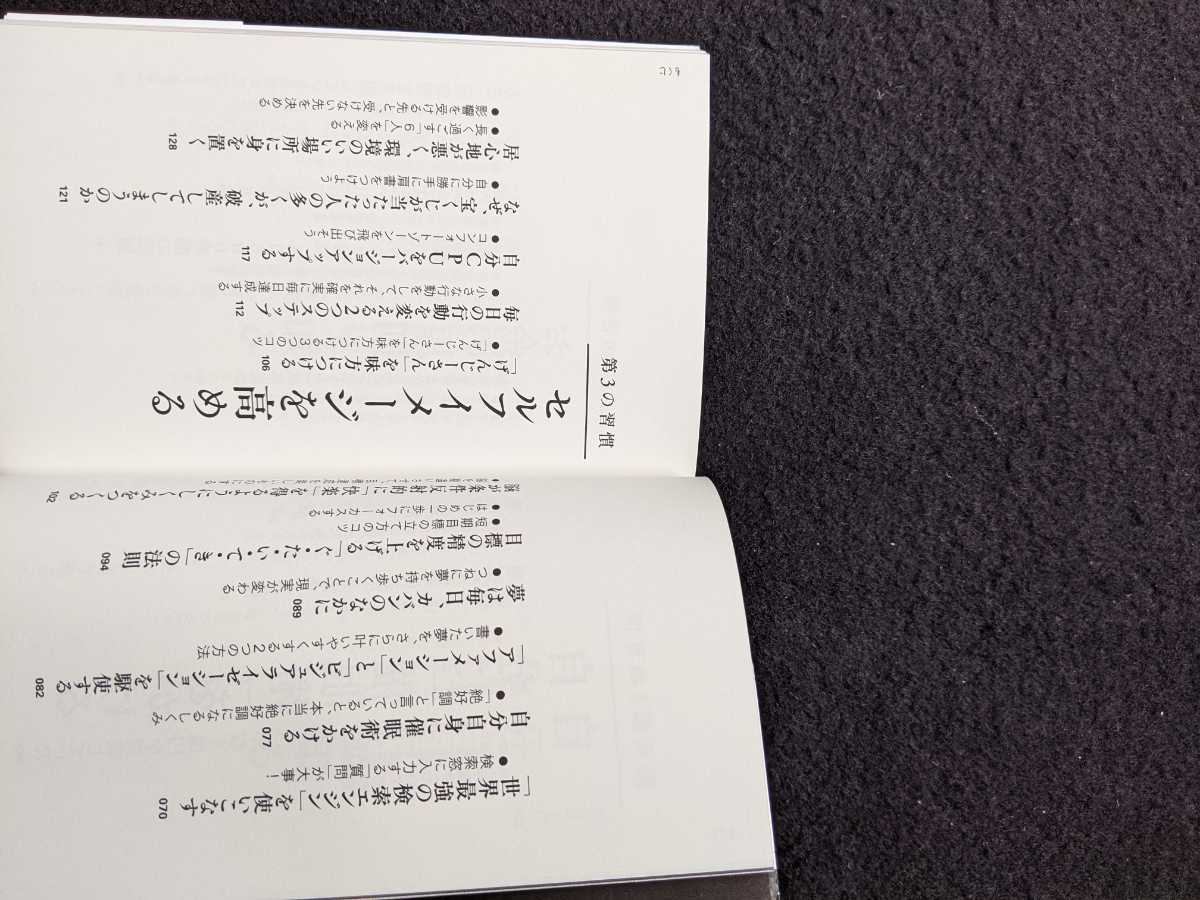 「世界最強の検索エンジン」を使いこなす 070
●検索窓に入力する「質問」が大事！
自分自身に催眠術をかける 077
●「絶好調」と言っていると、本当に絶好調になるしくみ
「アファメーション」と「ビジュアライゼーション」を駆使する 082
●書いた夢を、さらに叶いやすくする2つの方法
夢は毎日、カバンのなかに 089
●つねに夢を持ち歩くことで、現実が変わる
目標の精度を上げる「ぐ・たい・て・き」の法則 094
●短期目標の立て方のコツ
●はじめの一歩にフォーカスする
脳が条件反射的に「快楽」を得るようにしくみをつくる 102
第3の習慣
セルフイメージを高める
「げんじーさん」を味方につける 106
●「げんじーさん」を味方につける3つのコツ
毎日の行動を変える2つのステップ 112
●小さな行動をして、それを確実に毎日達成する
自分CPUをバージョンアップする 117
●コンフォートゾーンを飛び出そう
なぜ、宝くじが当たった人の多くが、破産してしまうのか 121
●自分に勝手に肩書をつけよう
居心地が悪く、環境のいい場所に身を置く 128
●長く過ごす「6人」を変える
●影響を受ける先と、受けない先を決める
もくじ